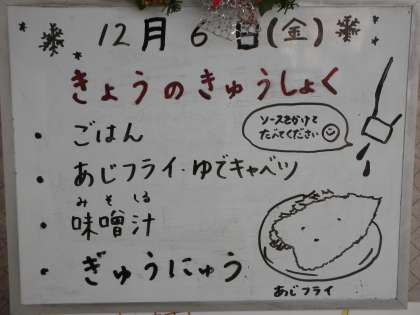 12月6日(金)
きょうのきゅうしょく
ソースをかけて
たべてください
・ごはん
・あじフライ・ゆでキャベツ
みそしる
・味噌汁
・ぎゅうにゅう
あじフライ